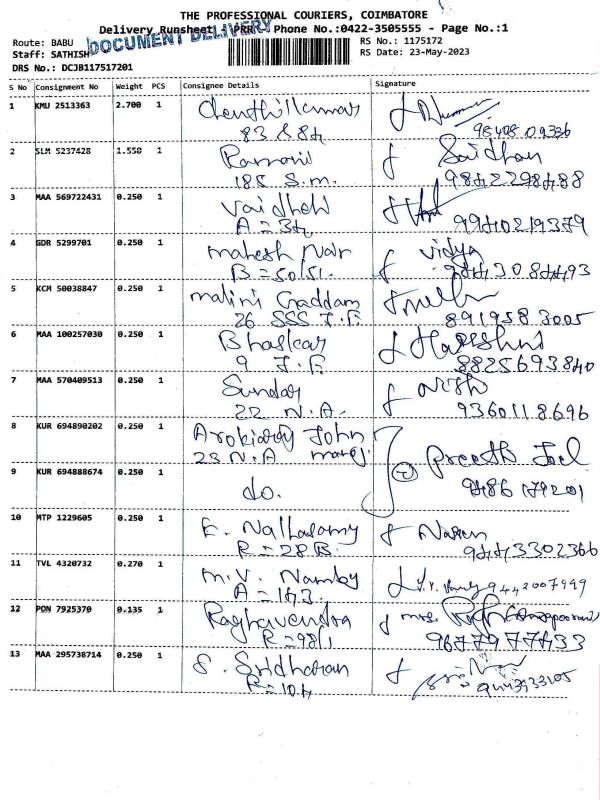 THE PROFESSIONAL COURIERS, COIMBATORE
Delivery Runsheet - PRR - Phone No.:0422-3505555 - Page No.:1
DOCUMENT DELIVERY
Route: BABU RS No.: 1175172
Staff: SATHISH RS Date: 23-May-2023
DRS No.: DCJB117517201
S No Consignment No Weight PCS Consignee Details Signature
1 KMU 2513363 2.700 1
83 & 84
2 SLM 5237428 1.550 1 Ramani Saidhan
185 S.m. 9842298488
3 MAA 569722431 0.250 1 Vaidhehi
A = 34 9940219379
4 GDR 5299701 0.250 1 mahesh Nair Vidya
B = 50/51.
5 KCM 50038847 0.250 1 malini Gaddam
26 SSS J.F. 891958 3005
6 MAA 100257030 0.250 1 Bhaskar Hareshni
9 J.F. 8825693840
7 MAA 570409513 0.250 1 Sundar
22 N.A. 9360118696
8 KUR 694890202 0.250 1 Arokiaraj John
23 N.A Preethi Joel
9 KUR 694888674 0.250 1 do.
10 MTP 1229605 0.250 1 K. Nallasamy Naren
R = 28 B. 9443302366
11 TVL 4320732 0.270 1 M.V. Namby 9442007999
A = 143.
12 PON 7925370 0.135 1 Raghavendra mrs.
R = 98/1 9677977433
13 MAA 295738714 0.250 1 S. Sridharan
R = 104